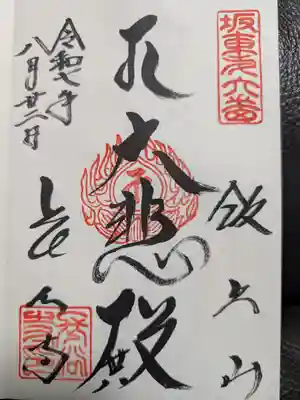 坂東第六番
飯上山
大悲殿
令和七年
八月廿二日
長谷寺